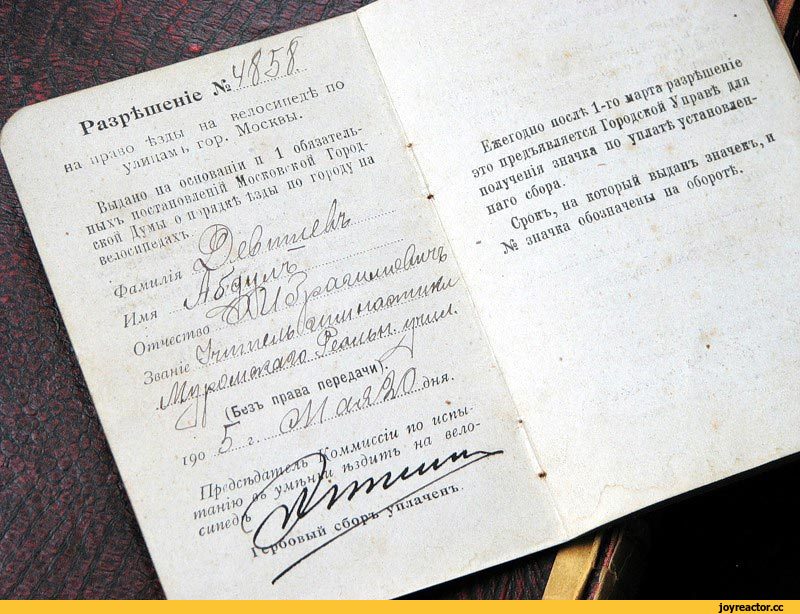 Разрѣшеніе № 4858
на право ѣзды на велосипедѣ по
улицамъ гор. Москвы.
Выдано на основаніи п 1 обязатель-
ныхъ постановленій Московской Город-
ской Думы о порядкѣ ѣзды по городу на
велосипедахъ.
Фамилія
Имя Абдулъ
Отчество Ибрагимовичъ
Званіе Учитель гимнастики
Муромскаго Реальн. учил.
(Безъ права передачи).
1905 г. Мая 20 дня.
Предсѣдатель Коммиссіи по испы-
танію въ умѣньи ѣздить на вело-
сипедѣ
Гербовый сборъ уплаченъ.
Ежегодно послѣ 1-го марта разрѣшеніе
это предъявляется Городской Управѣ для
полученія значка по уплатѣ установлен-
наго сбора.
Срокъ, на который выданъ значекъ, и
№ значка обозначены на оборотѣ.
joyreactor.cc